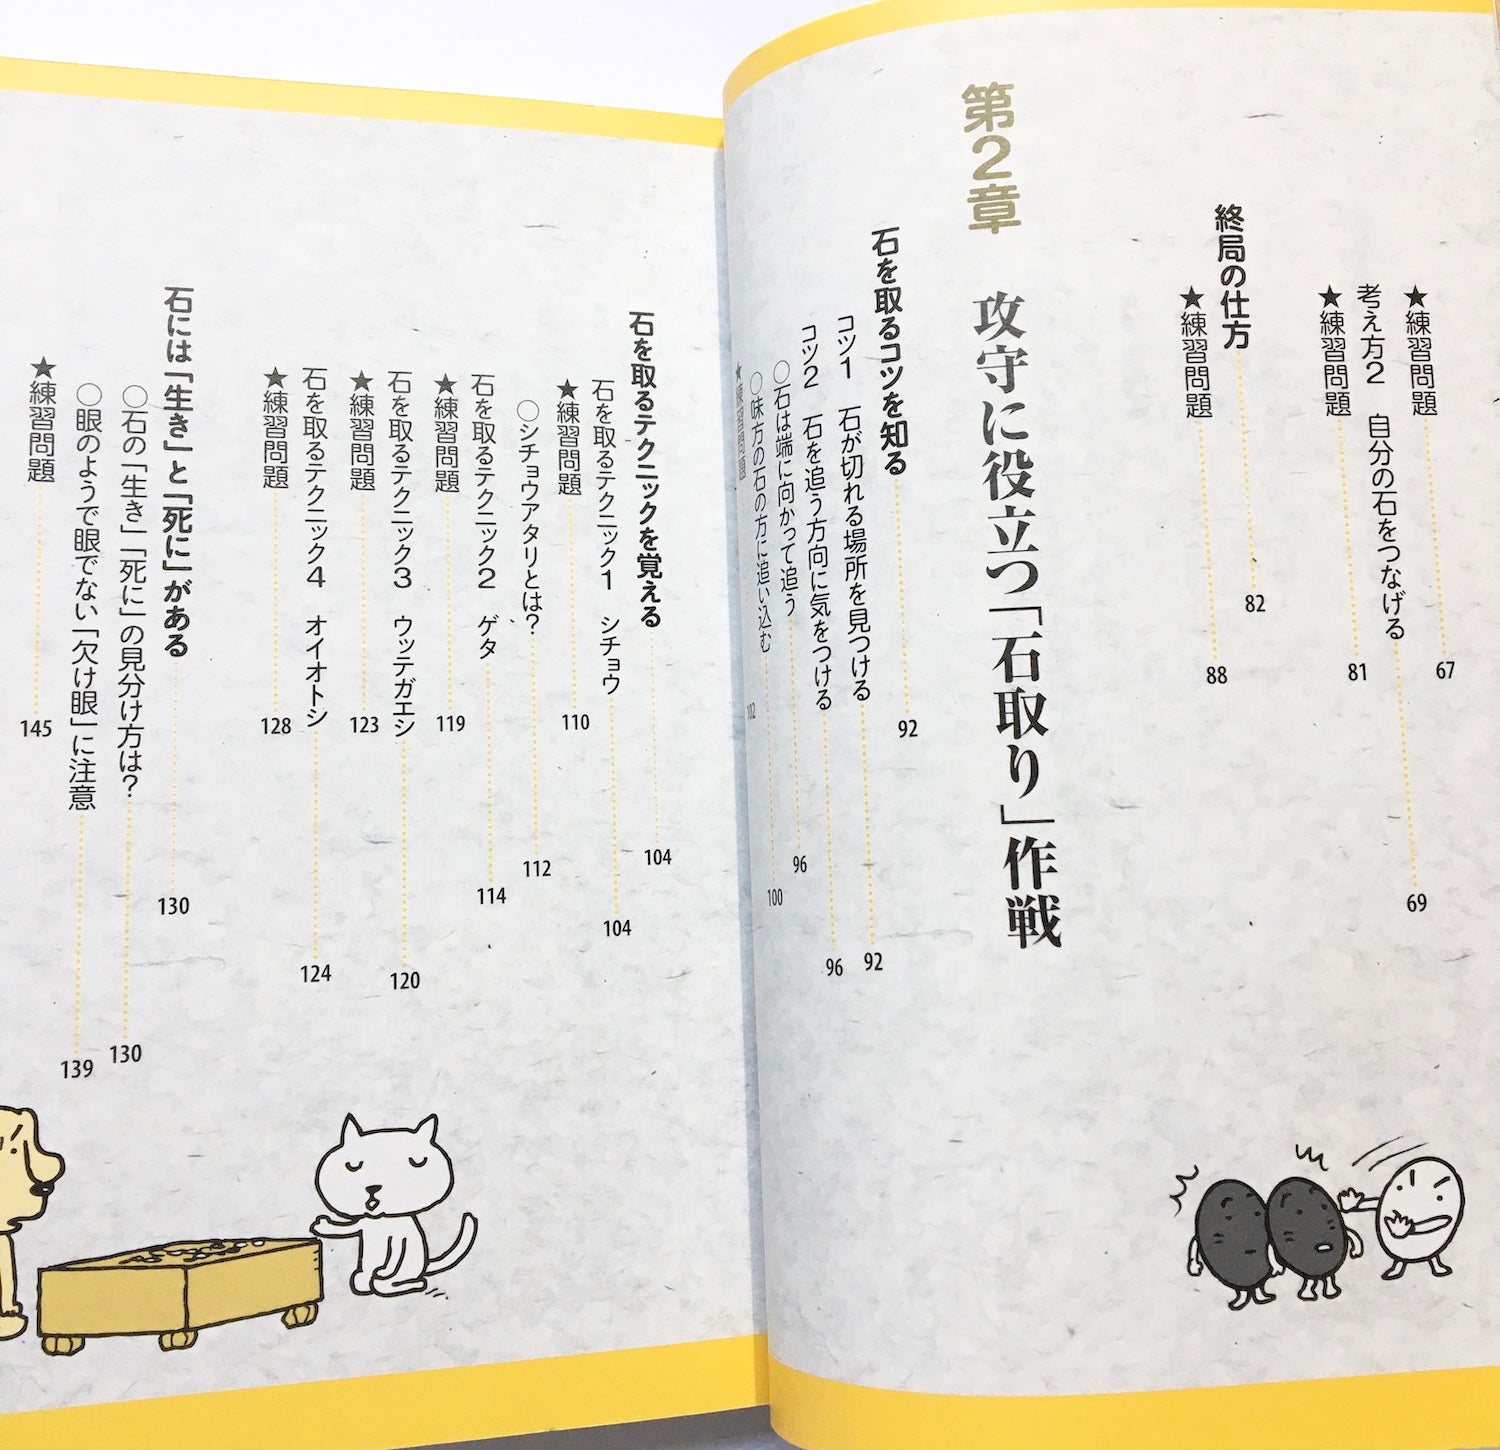 ★練習問題 67
考え方2 自分の石をつなげる 69
★練習問題 81
終局の仕方 82
★練習問題 88
第2章 攻守に役立つ「石取り」作戦
石を取るコツを知る 92
コツ1 石が切れる場所を見つける 92
コツ2 石を追う方向に気をつける 96
○石は端に向かって追う 96
○味方の石の方に追い込む 100
★練習問題 102
石を取るテクニックを覚える 104
石を取るテクニック1 シチョウ 104
★練習問題 110
○シチョウアタリとは? 112
石を取るテクニック2 ゲタ 114
★練習問題 119
石を取るテクニック3 ウッテガエシ 120
★練習問題 123
石を取るテクニック4 オイオトシ 124
★練習問題 128
石には「生き」と「死に」がある 130
○石の「生き」「死に」の見分け方は? 130
○眼のようで眼でない「欠け眼」に注意 139
★練習問題 145